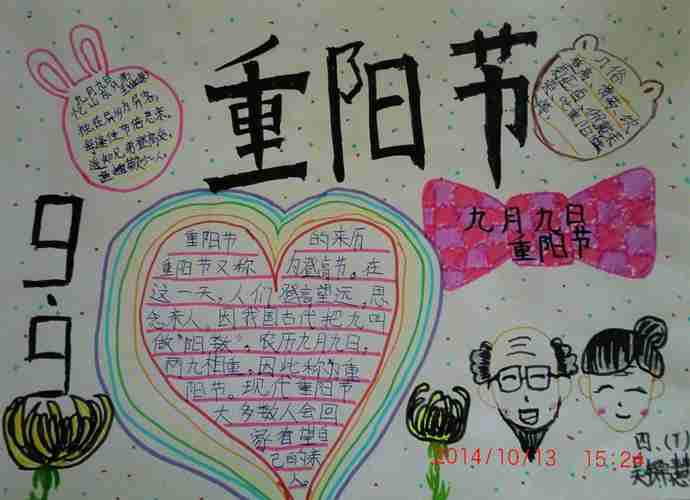 重阳节
忆山东兄弟
独在异乡为异客,
每逢佳节倍思亲。
遥知兄弟登高处,
遍插茱萸少一人。
习俗
9.9
九月九日
重阳节
重阳节 的来历
重阳节又称 为登高节。在
这一天,人们 登高望远,思
念亲人。因我国古代把九叫
做“阳数”。农历九月九日,
两九相重,因此称为重
阳节。现代重阳节
大多数人会回
家看望自
己的亲
人。
四、(1)
2014/10/13 15:24